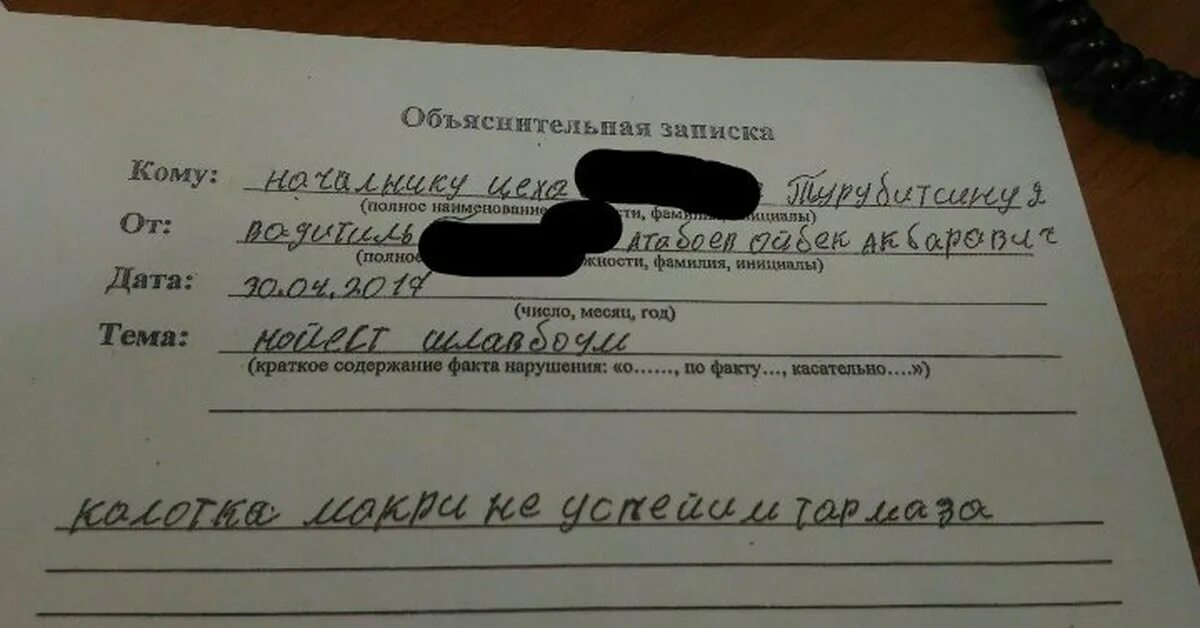 Объяснительная записка
Кому: началнику цеха Турубитсину Я
(полное наименование ти, фамилия, инициалы)
От: вадитиль Атабоев Ойбек Акбаравич
(полное жности, фамилия, инициалы)
Дата: 30.04.2017
(число, месяц, год)
Тема: нойест шлавбоум
(краткое содержание факта нарушения: «о……, по факту…, касательно….»)
калотка макри не успейим тармаза